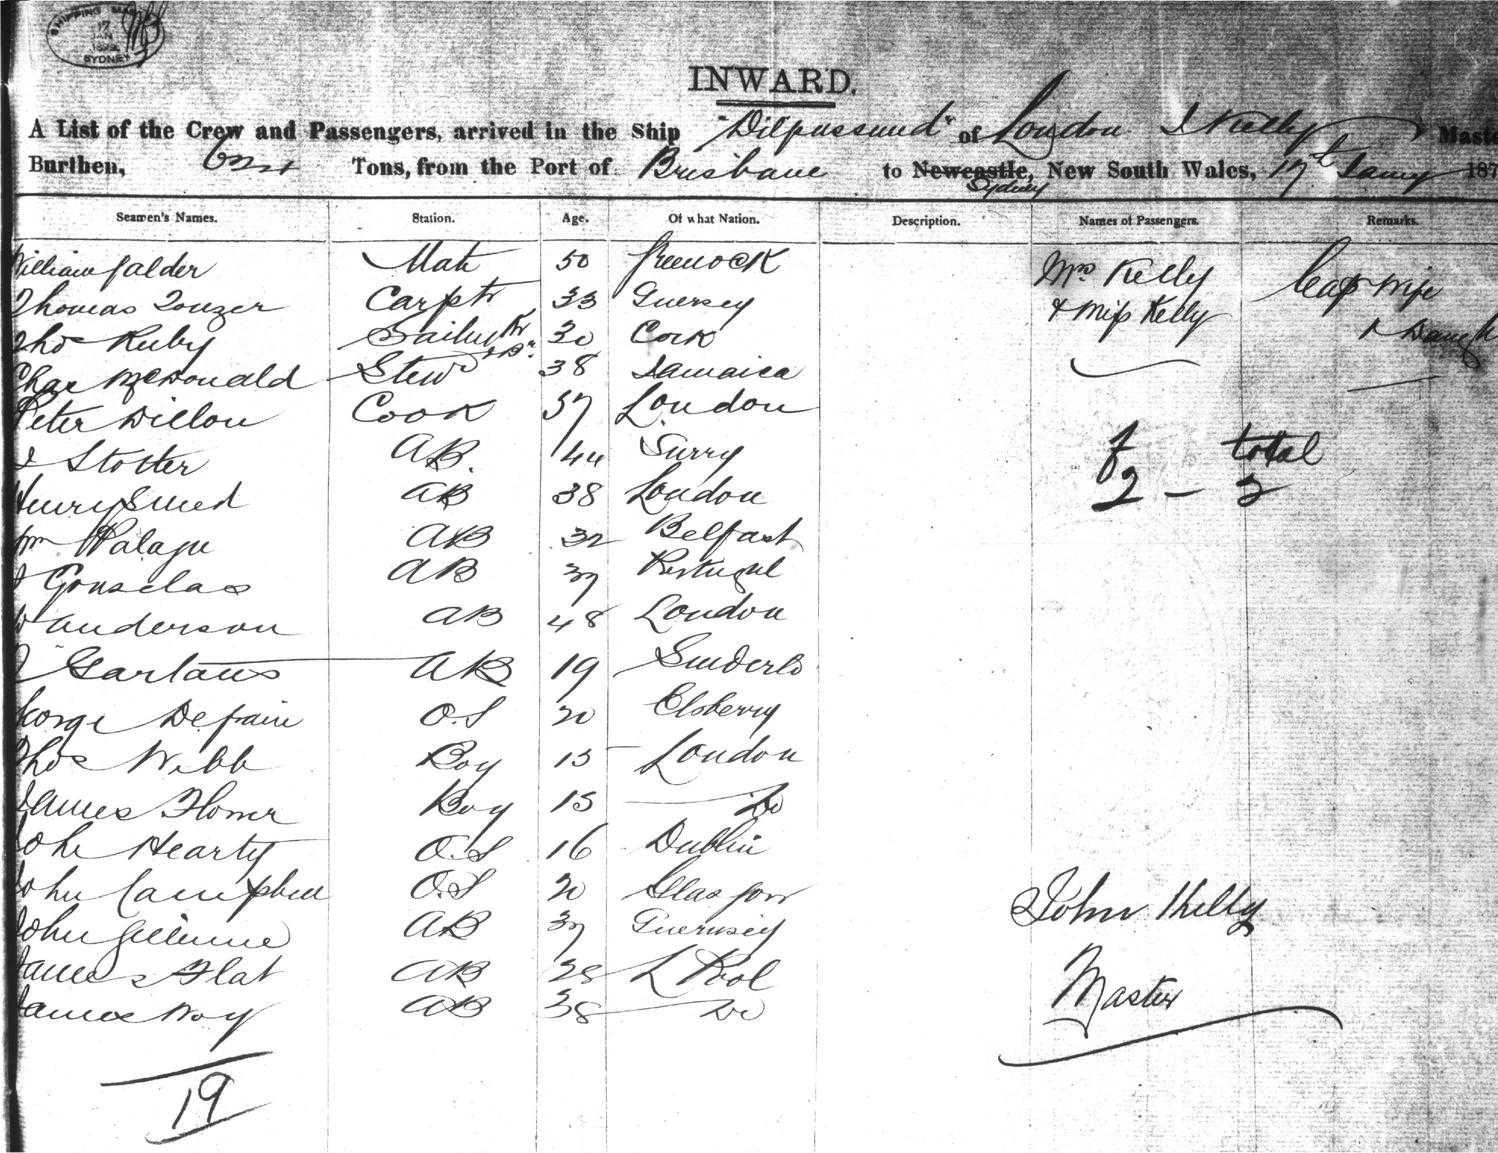 SHIPPING MA
17
JAN
SYDNEY
INWARD.
A List of the Crew and Passengers, arrived in the Ship "Dilpussund" of London J Kelly Maste
Burthen, Tons, from the Port of Brisbane to Newcastle, New South Wales, 17th Jany 187
Sydney
Seamen's Names. Station. Age. Of what Nation. Description. Names of Passengers. Remarks.
William Calder Mate 50 Greenock Mrs Kelly Capt Wife
Thomas Touzer Carptr 33 Guersey & Miss Kelly & Daugh
Thos Ruby 30 Cork
Chas McDonald Stewd 38 Jamaica
Peter Dillon Cook 57 London
J Stotter AB. 44 Surry f total
Henry AB 38 London 2 - 2
Wm AB 32 Belfast
J Gonsclas AB 37 Portugal
Anderson AB 48 London
J AB 19 Sunderld
George Defraine O.S 20
Thos Webb Boy 15 London
James Flower Boy 15 Do
John Hearty O.S 16 Dublin
John Campbell O.S 20 Glasgow
John AB 37 Guernsey
James Flat AB 28 L Pool
James Roy AB 38 Do
19
John Kelly
Master